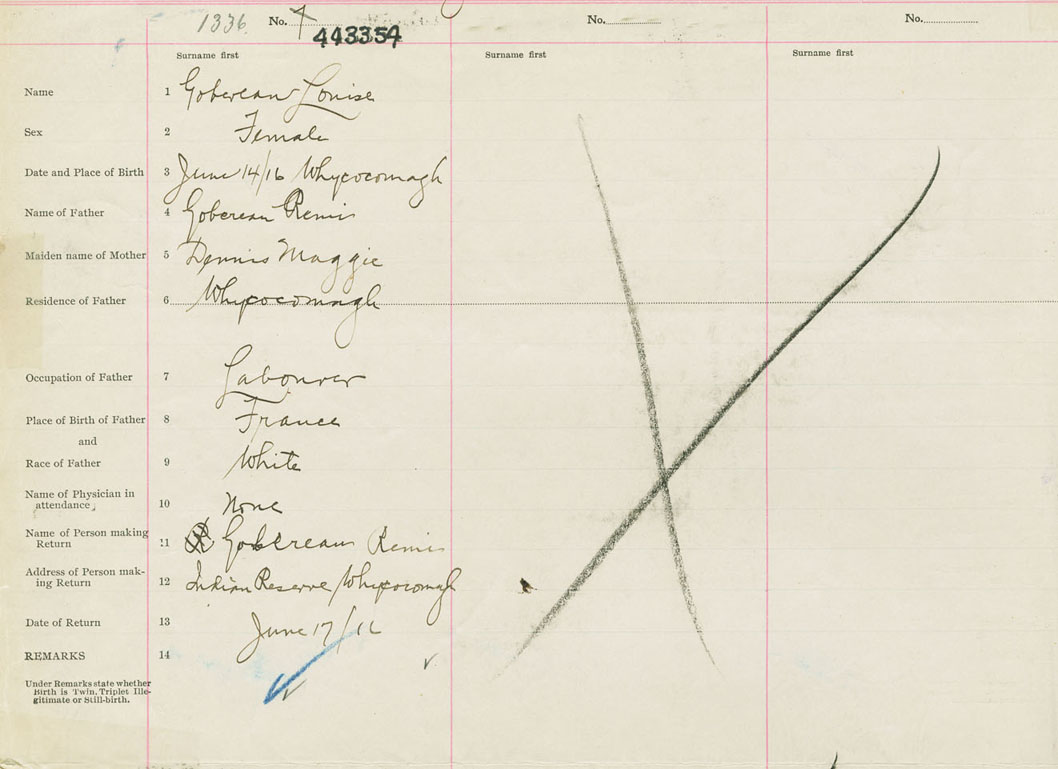 1336. No. 7 No. No.
443354
Surname first Surname first Surname first
Name 1 Gobereau Louise
Sex 2 Female
Date and Place of Birth 3 June 14/16 Whycocomagh
Name of Father 4 Gobereau Remi
Maiden name of Mother 5 Dennis Maggie
Residence of Father 6 Whycocomagh
Occupation of Father 7 Labourer
Place of Birth of Father 8 France
and
Race of Father 9 White
Name of Physician in
attendance, 10 None
Name of Person making
Return 11 Gobereau Remi
Address of Person mak-
ing Return 12 Indian Reserve Whycocomagh
Date of Return 13 June 17/16
REMARKS 14
Under Remarks state whether
Birth is Twin, Triplet Ille-
gitimate or Still-birth.